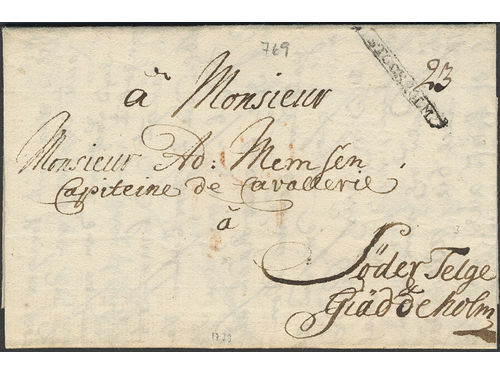 769
à Monsieur
23
STOCKHOLM
Monsieur Ad: Memsen
Capiteine de Cavallerie
à
Söder Telge
&
Giäddeholm